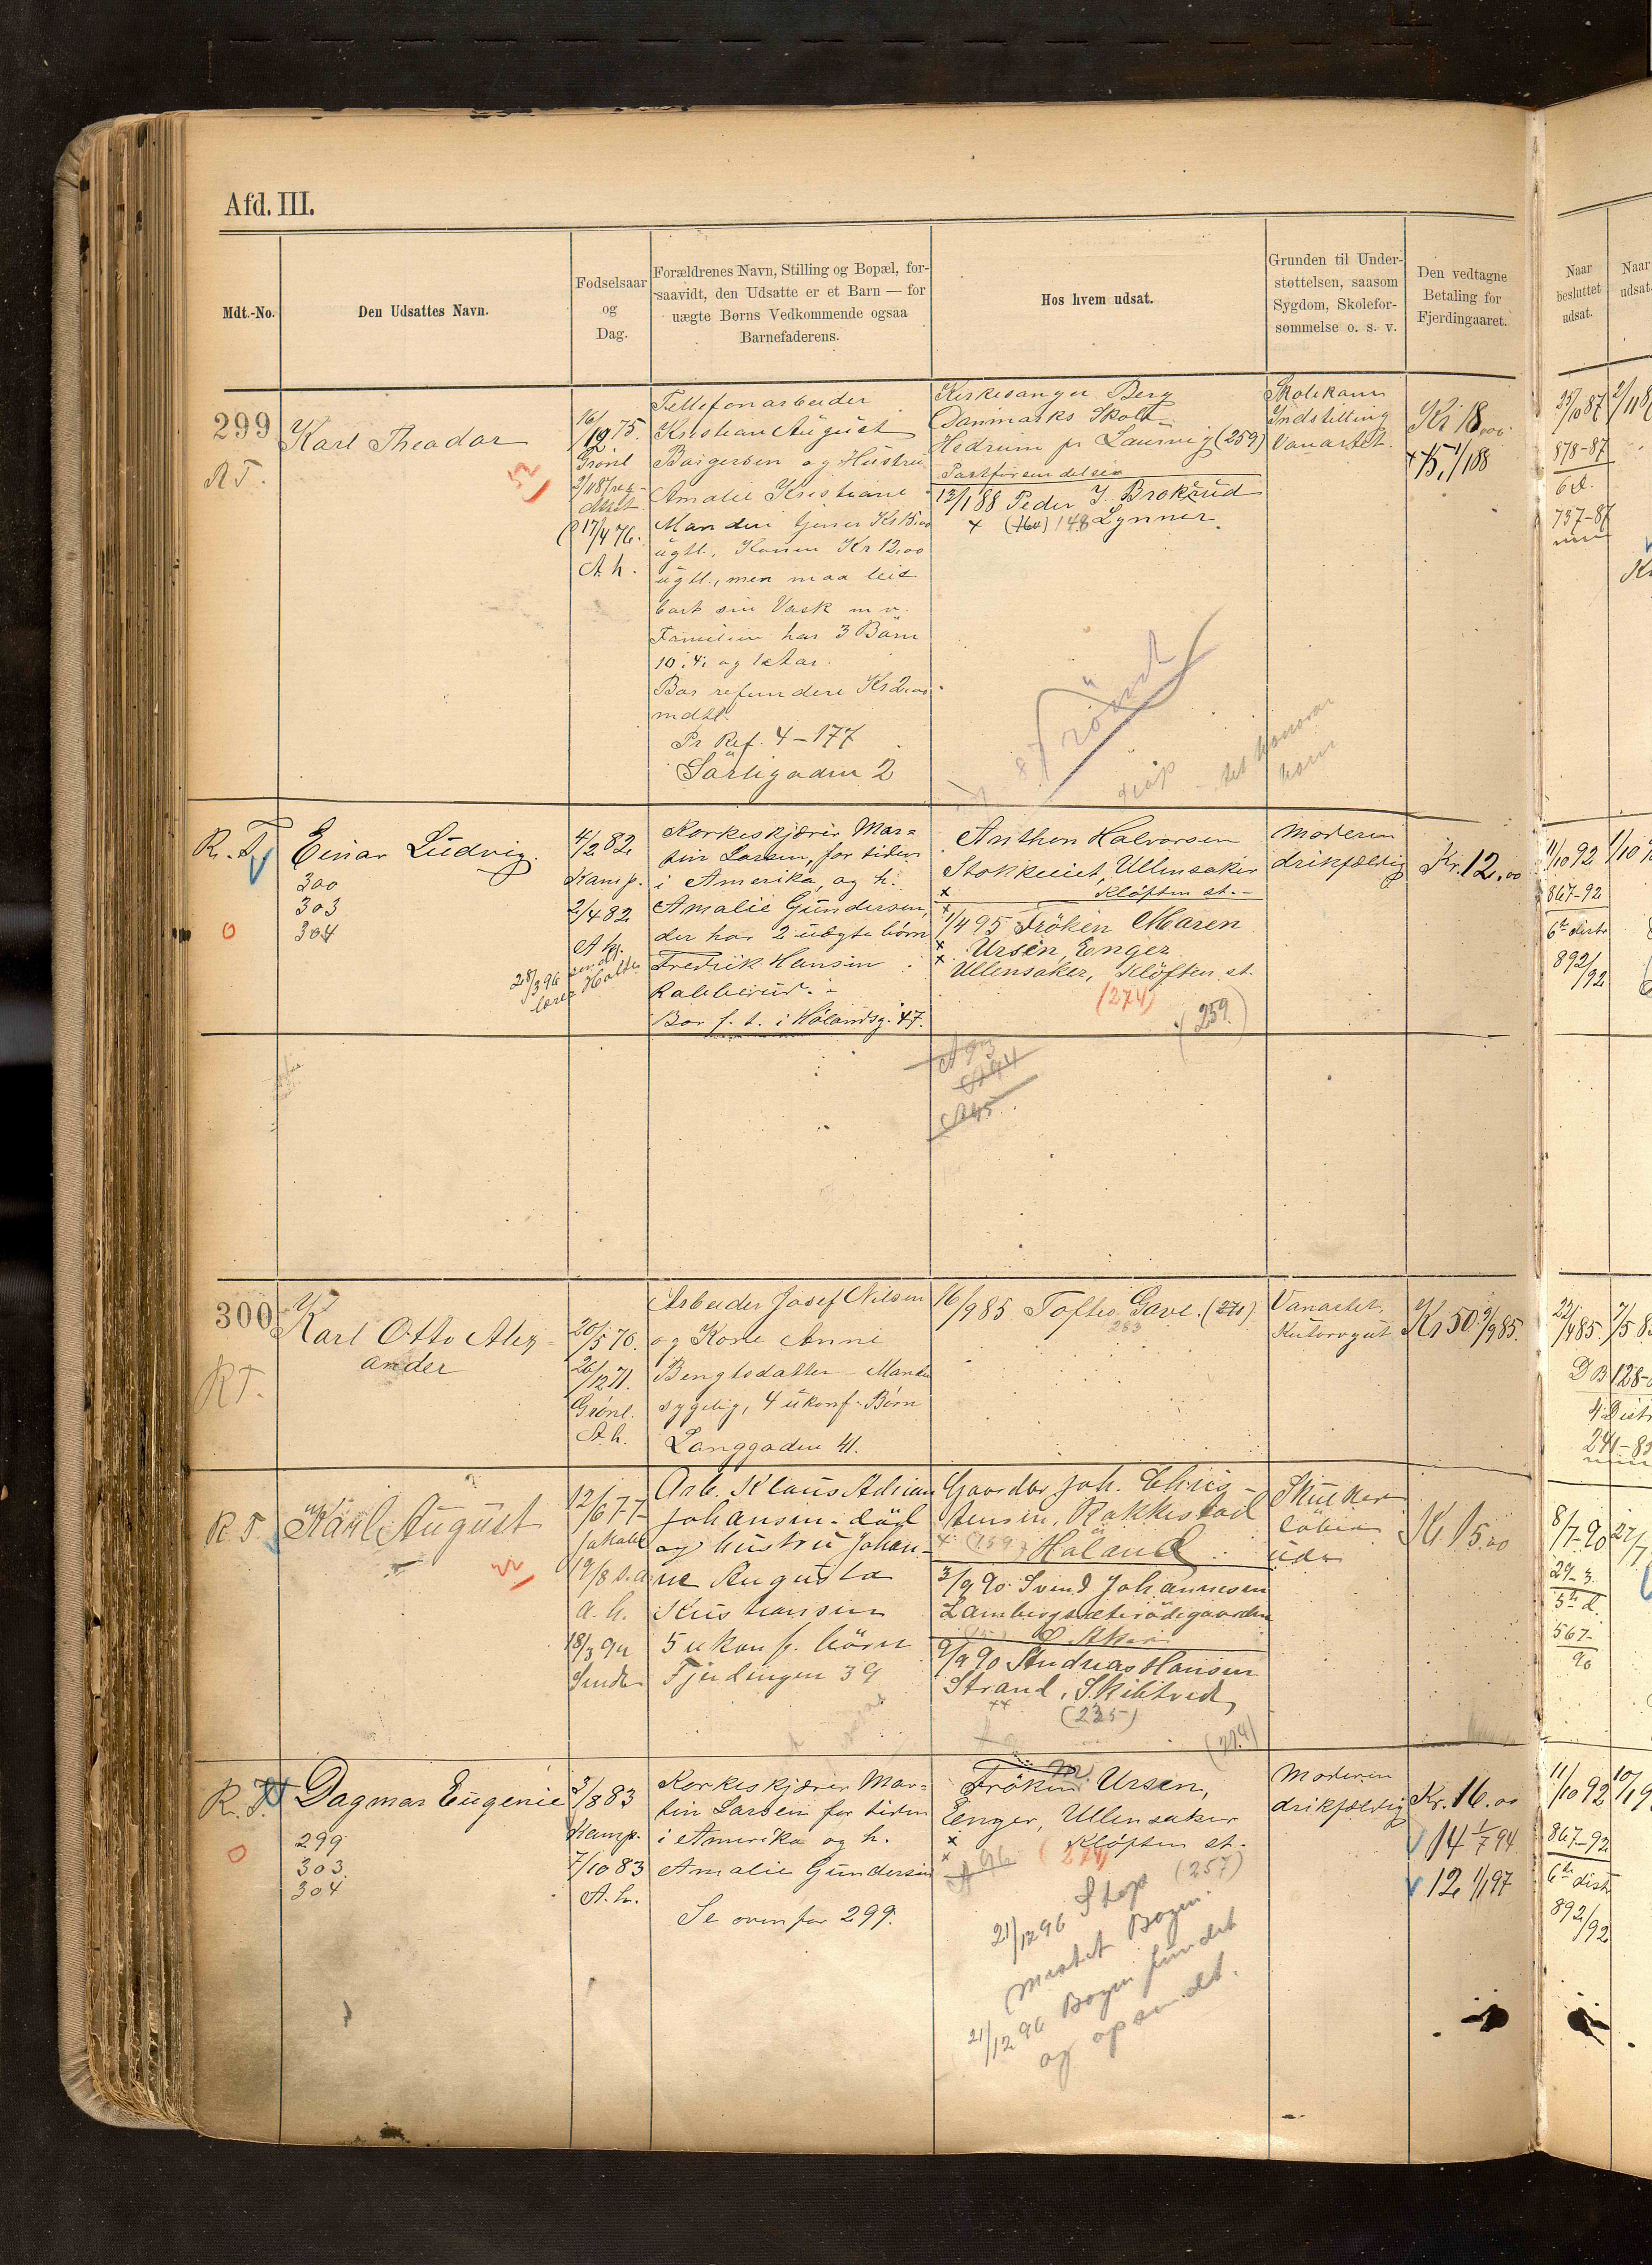 Afd. III.
Mdt.-No.
Den Udsattes Navn.
Fødselsaar
og
Dag.
Forældrenes Navn, Stilling og Bopæl, for-
saavidt, den Udsatte er et Barn — for
uægte Børns Vedkommende ogsaa
Barnefaderens.
Hos hvem udsat.
Grunden til Under-
støttelsen, saasom
Sygdom, Skolefor-
sømmelse o. s. v.
Den vedtagne
Betaling for
Fjerdingaaret.
Naar
besluttet
udsat.
Naar
udsat.
299
R T.
Karl Theodor
16/12 75.
Grønl
17/4 76.
A. h.
52
Telefonarbeider
Kristian August
Børgersen og Hustru
Amalie Kristiane
Manden tjener Kr 15.00
ugtl., Konen Kr 12.00
ugtl., men maa leie
bort sin Vask m v.
Familien har 3 Børn
10, 4, og 1 Aar.
Bør refundere Kr 2.00
mdtl.
Pr Ref. 4-177
Sörligaden 2
Kirkesanger Berg
Danmarks Skole
Hedrum pr Laurvig (259)
12/1 88 Peder J. Brokerud
x (160) 148 Lynner.
Skolekom
Indstilling
Vanartet.
Kr 18.00
+ 15, 1/1 88
25/10 87
878-87
6 d.
737-87
R. T.
Einar Ludvig.
300
303
304
4/2 82
Kamp.
2/4 82
A. h.
28/3 96 send
lærer Holte
Korkeskjærer Mar=
tin Larsen, for tiden
i Amerika, og h.
Amalie Gundersen,
der har 2 uægte børn
Fredrik Hansen
Rabberud.
Bor f. t. i Hølandsg. 47.
Anthon Halvorsen
Ullensaker
Kløften st.
1/4 95 Frøken Maren
Ursin, Enger
Ullensaker, Kløften st.
(274)
(259)
A 93
A 94
A 95
Moderen
drikfældig
Kr. 12.00
11/10 92
867-92
6te distr
892/92
300
RT.
Karl Otto Alex-
ander
20/5 70.
26/12 71.
Grønl.
A. h.
Arbeider Josef Nilsen
og Kone Anne
Bengtsdatter - Manden
sygelig, 4 ukonf. Børn
Langgaden 41.
16/9 85 Toftes Gave. (271)
283
Vanartet.
Kr 50 9/9 85.
22/4 85
D B 128-
4 Distr
241-85
R. T.
Karl August
12/6 77
Jakobs
19/8 s. a.
a. h.
18/3 94
Arb. Klaus Adrian
Johansen - død
og hustru Johan-
ne Augusta
Kristiansen
5 ukonf. børn
Fjerdingen 39
Gaardbr Joh. Chris-
tensen, Rakkestad
x (159) Høland
3/9 90. Svend Johannesen
Aker
9/9 90 Andreas Hansen
Strand, Skibtved
(235)
(214)
Skulker
løber
ude
Kr 15.00
8/7-90
27/7
29-3.
5te d.
567-
90
R. T.
Dagmar Eugenie
299
303
304
3/8 83
Kamp.
7/10 83
A. h.
Korkeskjærer Mar=
tin Larsen for tiden
i Amerika og h.
Amalie Gundersen
Se ovenfor 299.
Frøken M Ursin,
Enger, Ullensaker
Kløften st.
A 96 (274)
(257)
21/12 96 Stop
mistet Bogen.
21/12 96 Bogen fundet
og opsendt.
Moderen
drikfældig
Kr. 16.00
14 1/7 94
12 1/1 97
11/10 92
867-92
6te distr
892/92